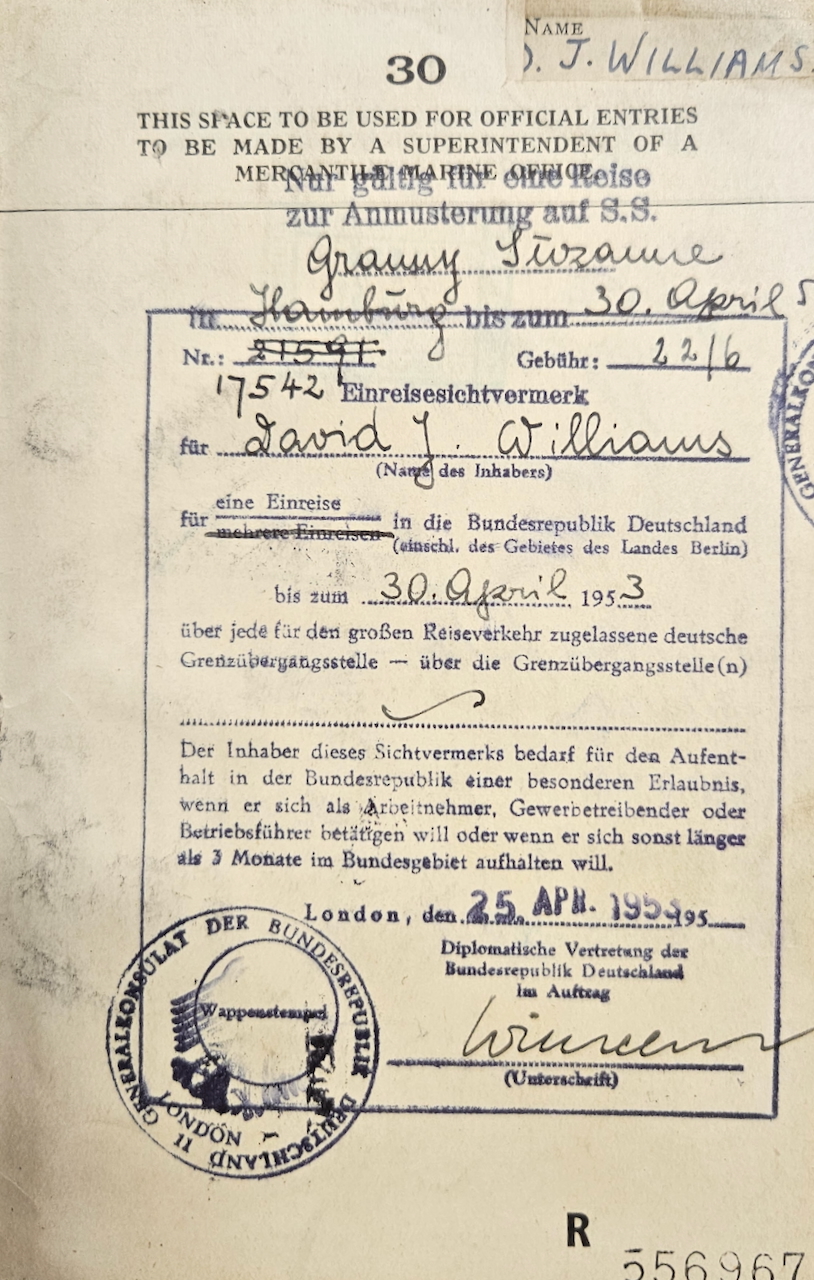 NAME
D. J. WILLIAMS.
30
THIS SPACE TO BE USED FOR OFFICIAL ENTRIES
TO BE MADE BY A SUPERINTENDENT OF A
MERCANTILE MARINE OFFICE.
Nur gültig für eine Reise
zur Anmusterung auf S.S.
Granny Suzanne
in Hamburg bis zum 30. April 5
Nr.: 21591 Gebühr: 22/6
17542 Einreisesichtvermerk
für David J. Williams
(Name des Inhabers)
für eine Einreise
mehrere Einreisen in die Bundesrepublik Deutschland
(einschl. des Gebietes des Landes Berlin)
bis zum 30. April 1953
über jede für den großen Reiseverkehr zugelassene deutsche
Grenzübergangsstelle — über die Grenzübergangsstelle(n)
Der Inhaber dieses Sichtvermerks bedarf für den Aufent-
halt in der Bundesrepublik einer besonderen Erlaubnis,
wenn er sich als Arbeitnehmer, Gewerbetreibender oder
Betriebsführer betätigen will oder wenn er sich sonst länger
als 3 Monate im Bundesgebiet aufhalten will.
London, den 25. APR. 1953 195
Diplomatische Vertretung der
Bundesrepublik Deutschland
im Auftrag
(Unterschrift)
Wappenstempel
GENERALKONSULAT DER BUNDESREPUBLIK DEUTSCHLAND
LONDON
11
GENERALKO
R
556967